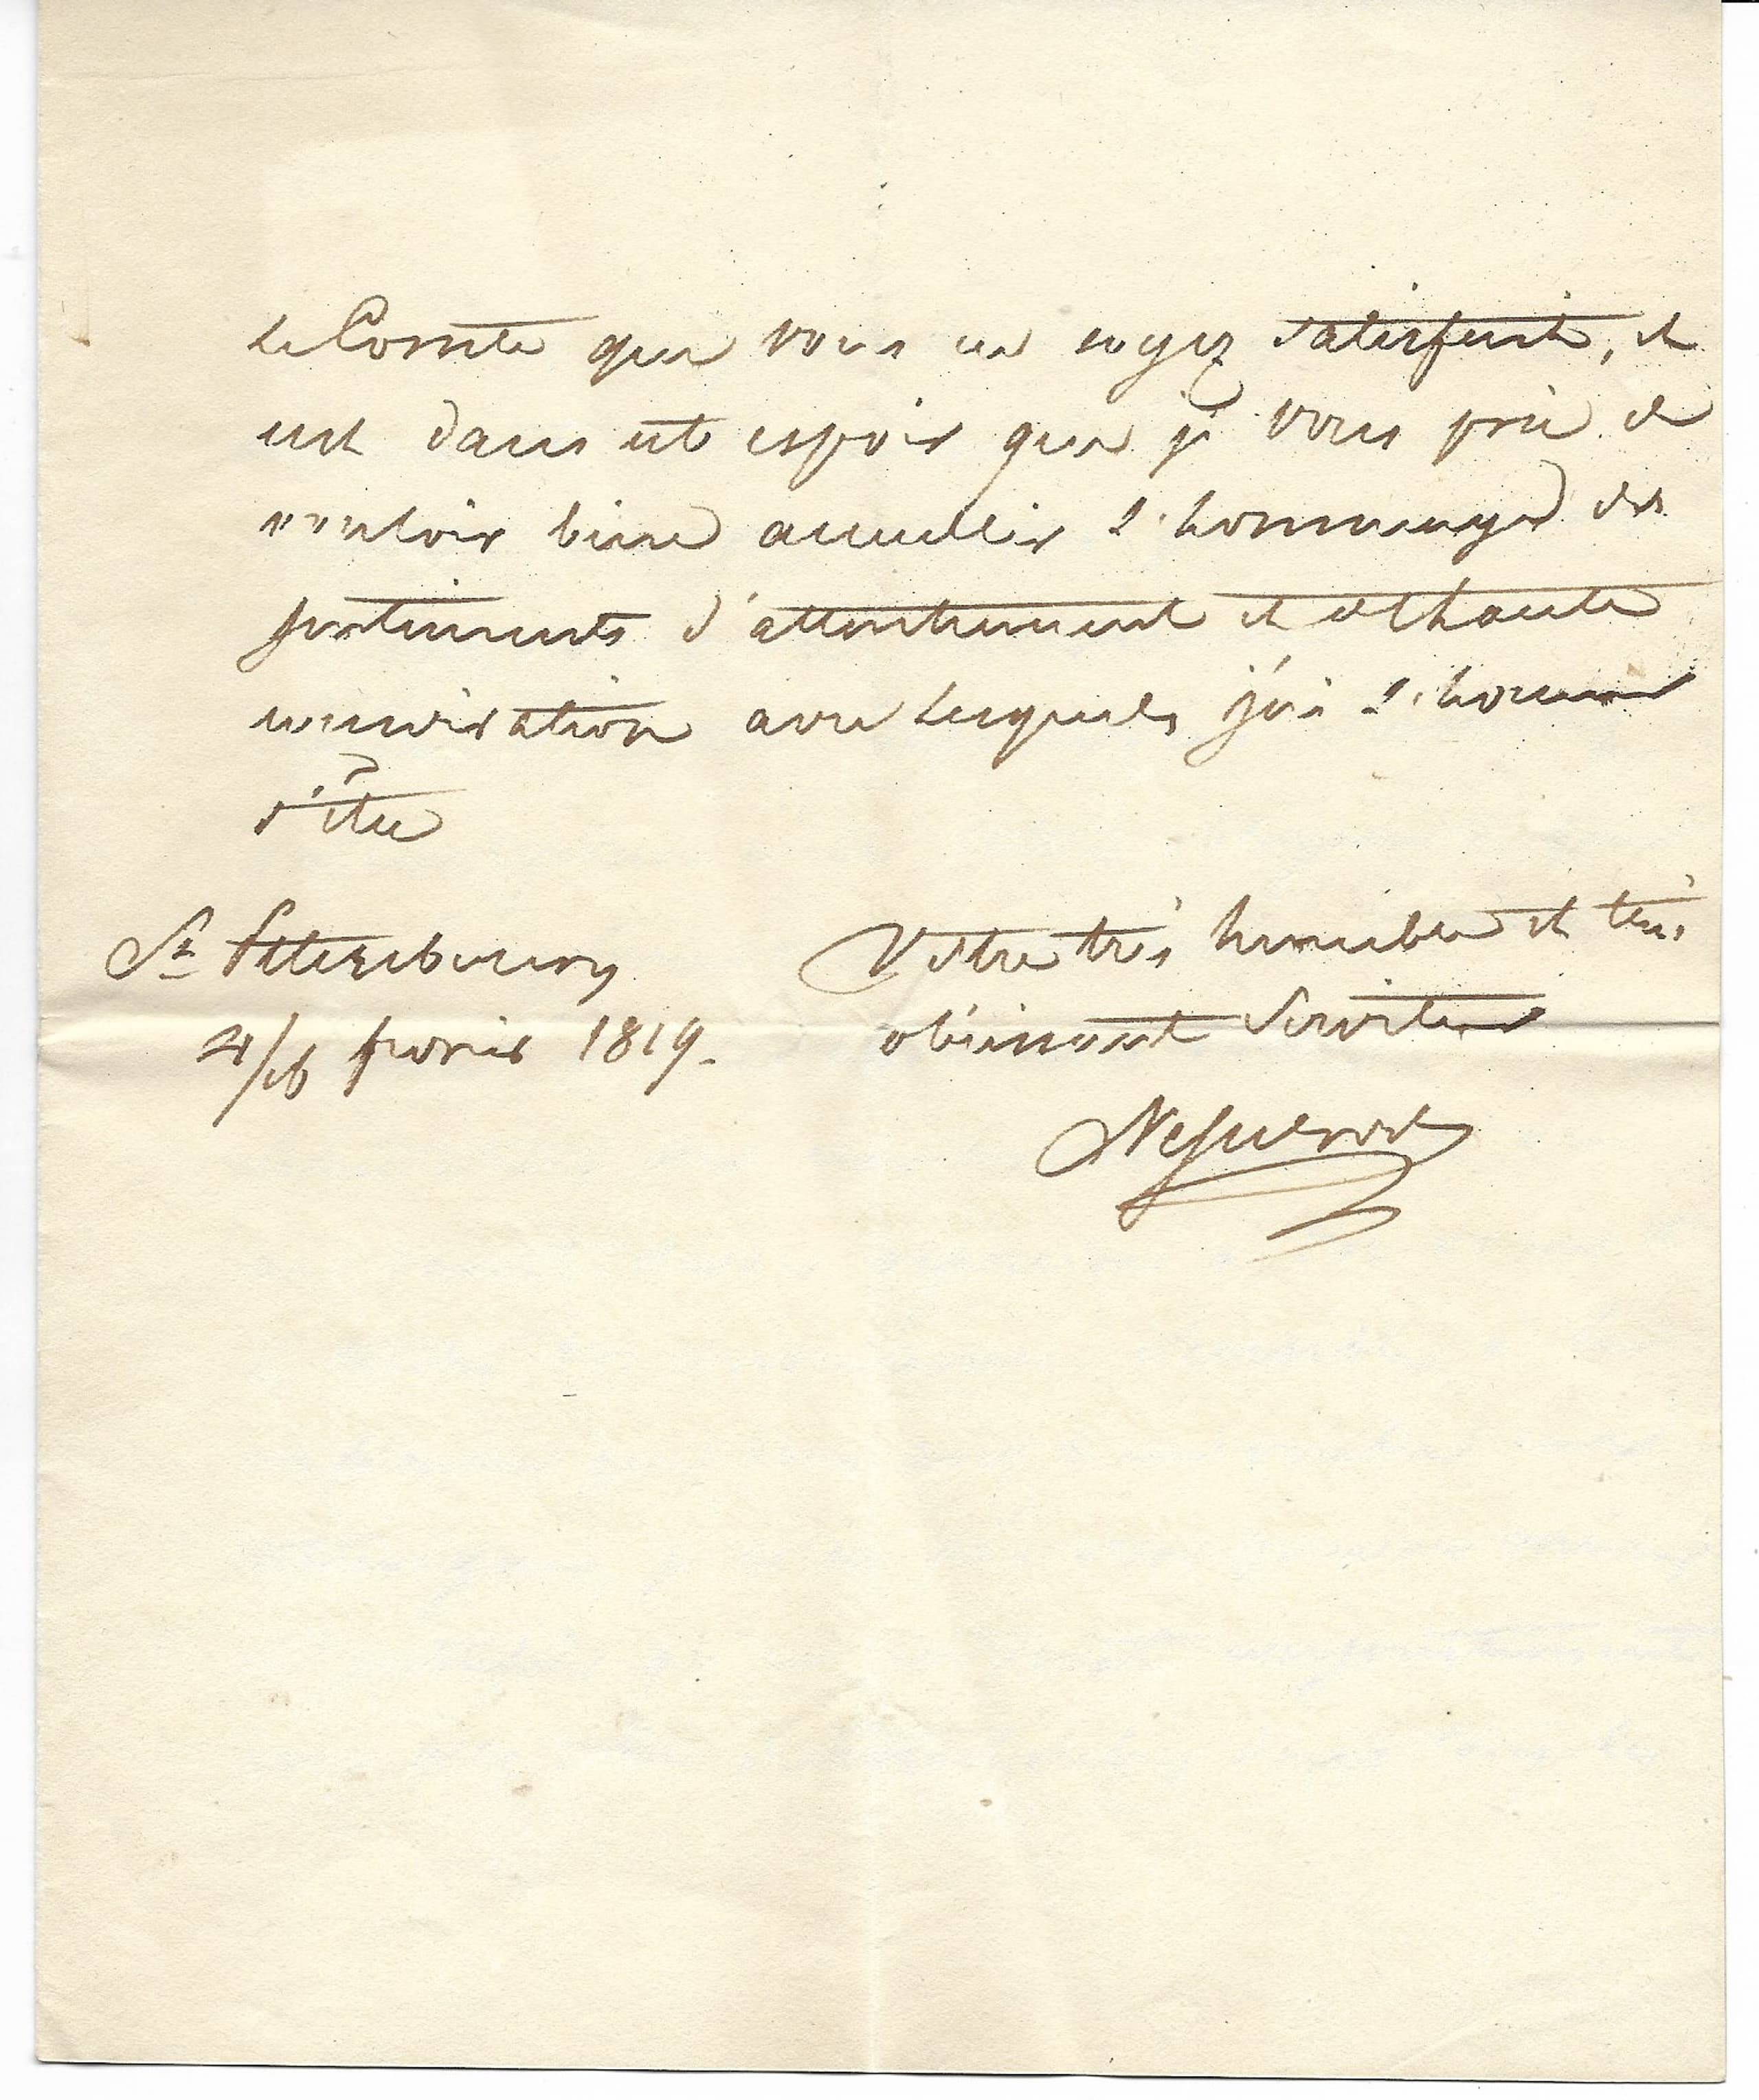 le Comte que vous en soyez satisfait, et
c'est dans cet espoir que je vous prie de
vouloir bien accueillir l'hommage des
sentiments d'attachement et de haute
considération avec lesquels j'ai l'honneur
d'être
Votre très humble et très
obéissant Serviteur
Nesselrode
St Petersbourg
4/16 fevrier 1819.